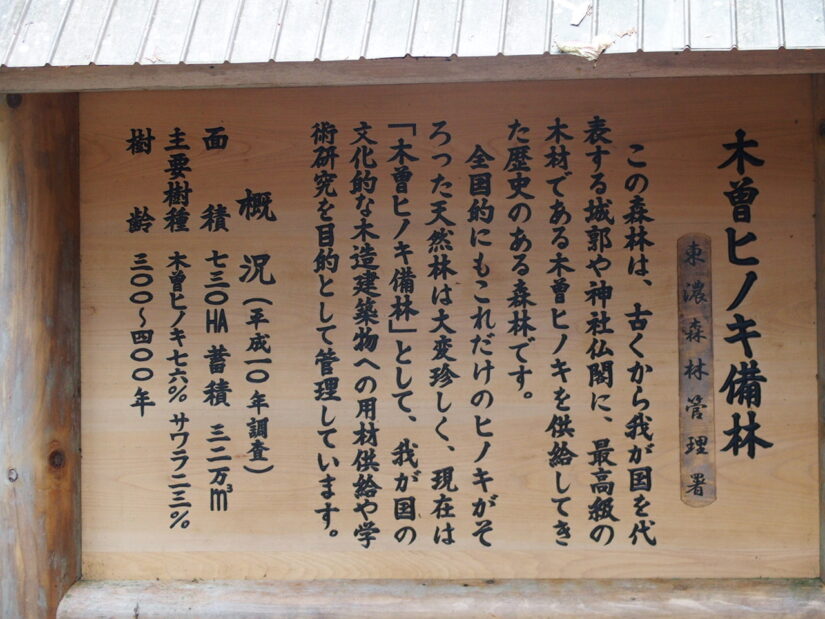 木曽ヒノキ備林
東濃森林管理署
この森林は、古くから我が国を代
表する城郭や神社仏閣に、最高級の
木材である木曽ヒノキを供給してき
た歴史のある森林です。
全国的にもこれだけのヒノキがそ
ろった天然林は大変珍しく、現在は
「木曽ヒノキ備林」として、我が国の
文化的な木造建築物への用材供給や学
術研究を目的として管理しています。
概況(平成一〇年調査)
面積 七三〇HA 蓄積 三二万㎥
主要樹種 木曽ヒノキ七六% サワラ二三%
樹齢 三〇〇~四〇〇年